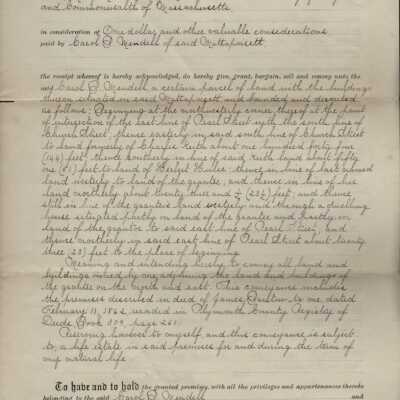 and Commonwealth of Massachusetts
in consideration of One dollar and other valuable considerations
paid by Carol D. Mendell of said Mattapoisett
the receipt whereof is hereby acknowledged, do hereby give, grant, bargain, sell and convey unto the
said Carol D. Mendell a certain parcel of land with the buildings
thereon situated in said Mattapoisett and bounded and described
as follows: Beginning at the northwesterly corner thereof at the point
of intersection of the east line of Pearl Street with the south line of
Church Street, thence easterly in said south line of Church Street
to land formerly of Charles about one hundred forty five
feet thence southerly in line of said land about fifty
one (51) feet to land of thence in line of last named
land westerly to land of the grantee, and thence in line of his
land northerly about twenty three and feet, and thence
still in line of the grantee's land westerly and through a dwelling
house situated partly on land of the grantee and partly on
land of the grantor to said east line of Pearl Street, and
thence northerly in said east line of Pearl Street about twenty
three (23) feet to the place of beginning.
Meaning and intending hereby to convey all land and
buildings owned by me adjoining the land and buildings of
the grantee on the north and east. This conveyance includes
the premises described in deed of James to me, dated
February 11, recorded in Plymouth County Registry of
Deeds Book page
Reserving however to myself, and this conveyance is subject
to, a life estate in said premises for and during the term of
my natural life.
To have and to hold the granted premises, with all the privileges and appurtenances thereto
belonging to the said Carol D. Mendell and